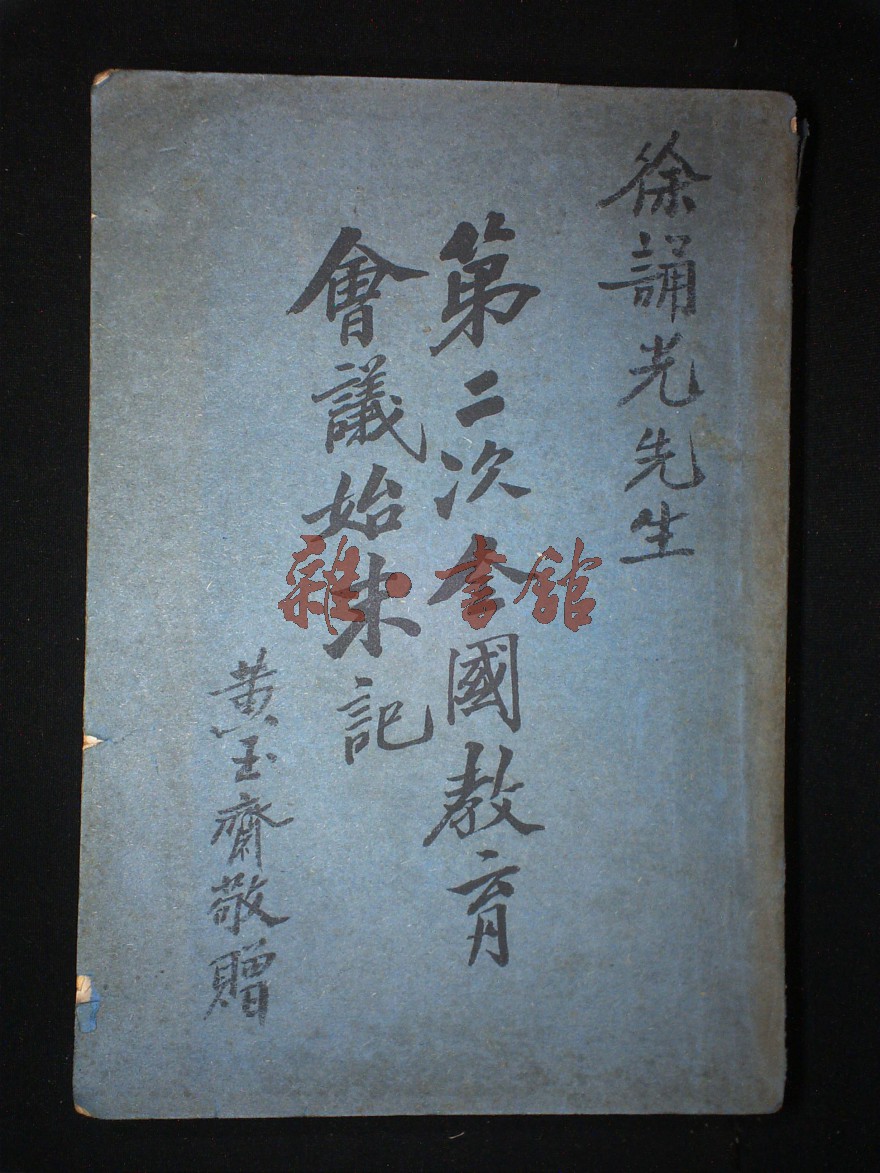 徐誦光先生
第二次全國教育
會議始末記
黃玉齋敬贈
雜·書館